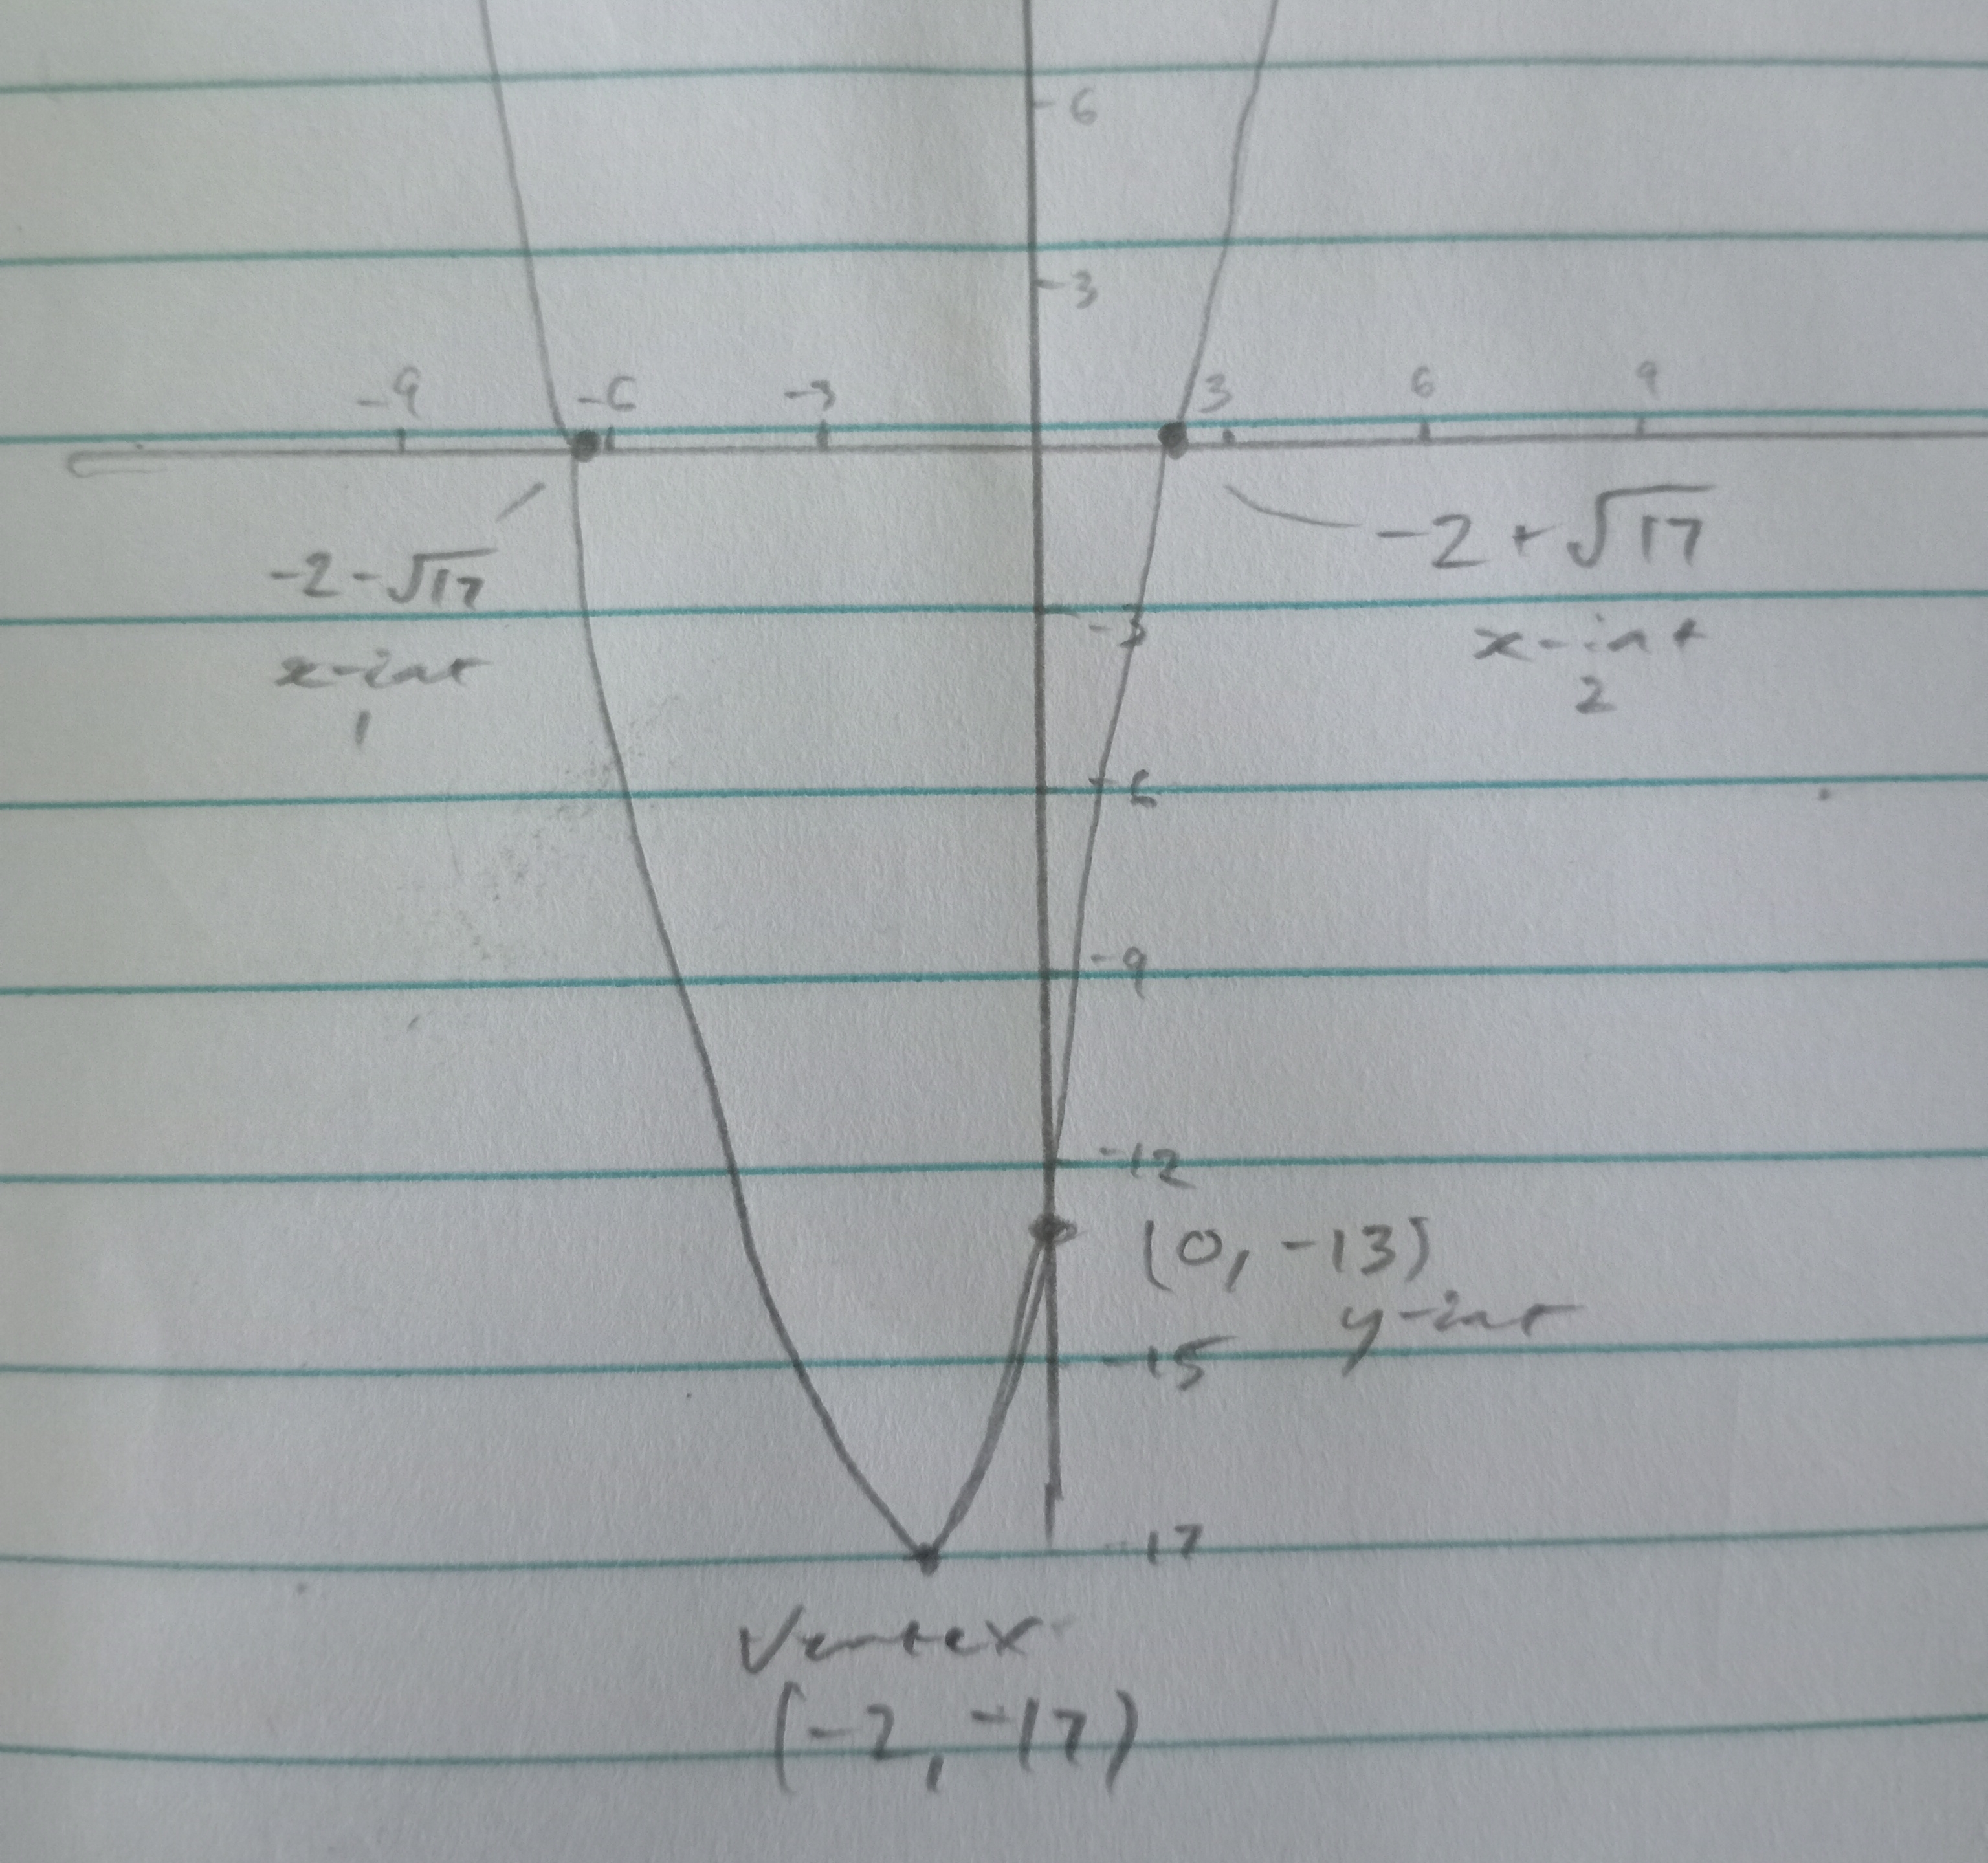 6
3
-9 -6 -3 3 6 9
-2-√17
x-int
1
-2+√17
x-int
2
-3
-6
-9
-12
(0, -13)
y-int
-15
-17
Vertex
(-2, -17)